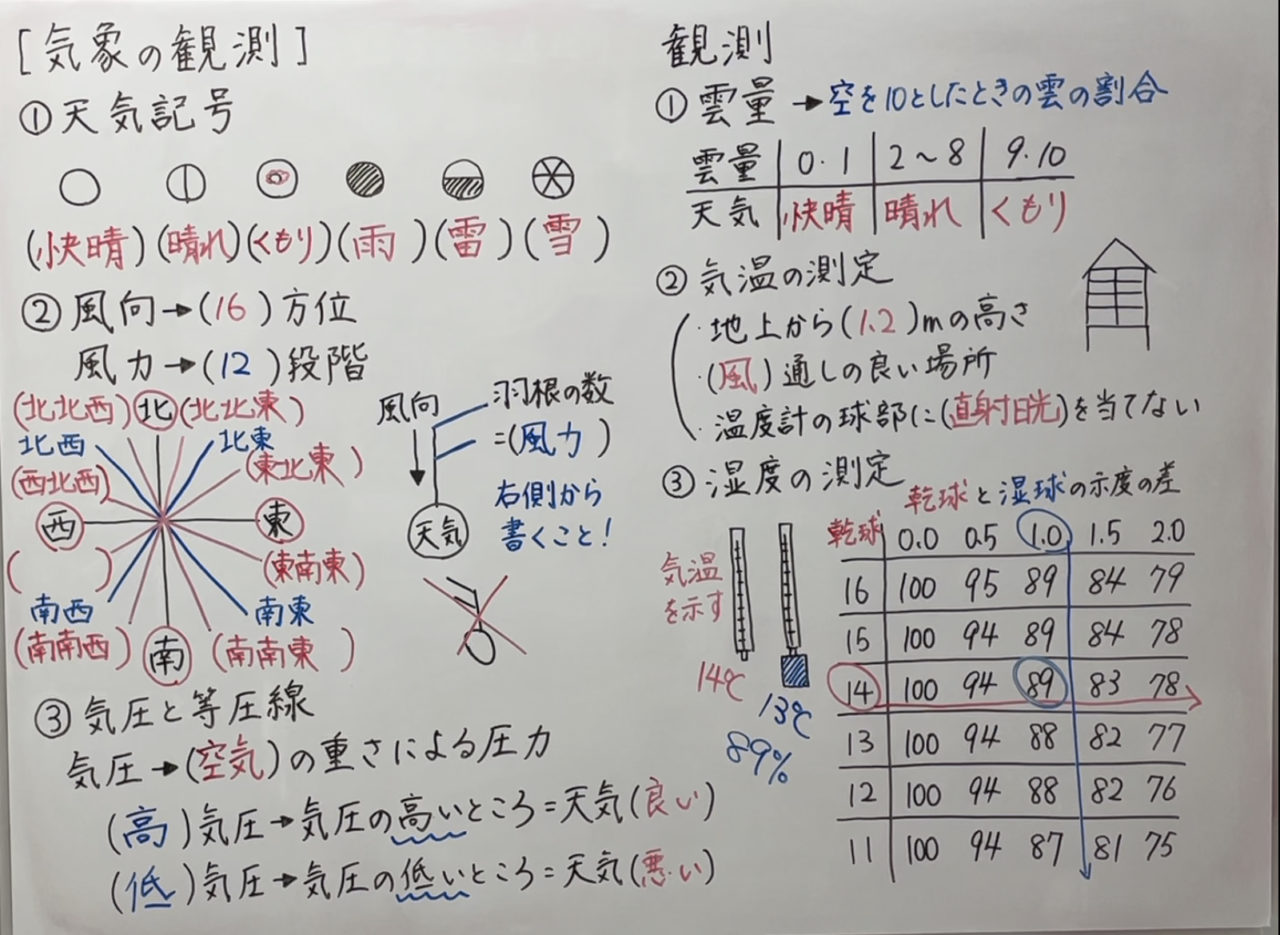 [気象の観測]
①天気記号
(快晴)(晴れ)(くもり)(雨)(雷)(雪)
②風向→(16)方位
風力→(12)段階
(北北西)北(北北東)
北西 北東
(西北西) (東北東)
西 東
( ) (東南東)
南西 南東
(南南西) 南 (南南東)
風向
羽根の数
=(風力)
天気
右側から
書くこと!
③気圧と等圧線
気圧→(空気)の重さによる圧力
(高)気圧→気圧の高いところ=天気(良い)
(低)気圧→気圧の低いところ=天気(悪い)
観測
①雲量→空を10としたときの雲の割合
雲量 0・1 2〜8 9・10
天気 快晴 晴れ くもり
②気温の測定
・地上から(1.2)mの高さ
・(風)通しの良い場所
・温度計の球部に(直射日光)を当てない
③湿度の測定
気温
を示す
14℃
13℃
89%
乾球と湿球の示度の差
乾球 0.0 0.5 1.0 1.5 2.0
16 100 95 89 84 79
15 100 94 89 84 78
14 100 94 89 83 78
13 100 94 88 82 77
12 100 94 88 82 76
11 100 94 87 81 75